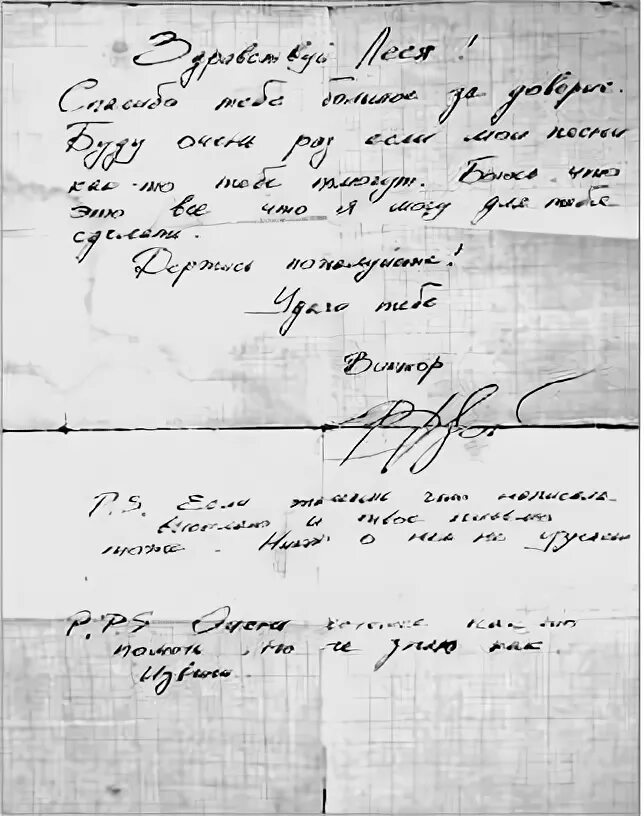 Здравствуй Леся!
Спасибо тебе большое за доверие.
Буду очень рад если мои песни
как-то тебе помогут. Боюсь что
это все что я могу для тебя
сделать.
Держись пожалуйста!
Удачи тебе
Виктор
P.S. Если что написала
и твое письмо
тоже. Никто о нем не узнает
P.P.S Очень хотелось как-то
помочь но не знаю как.
Извини.